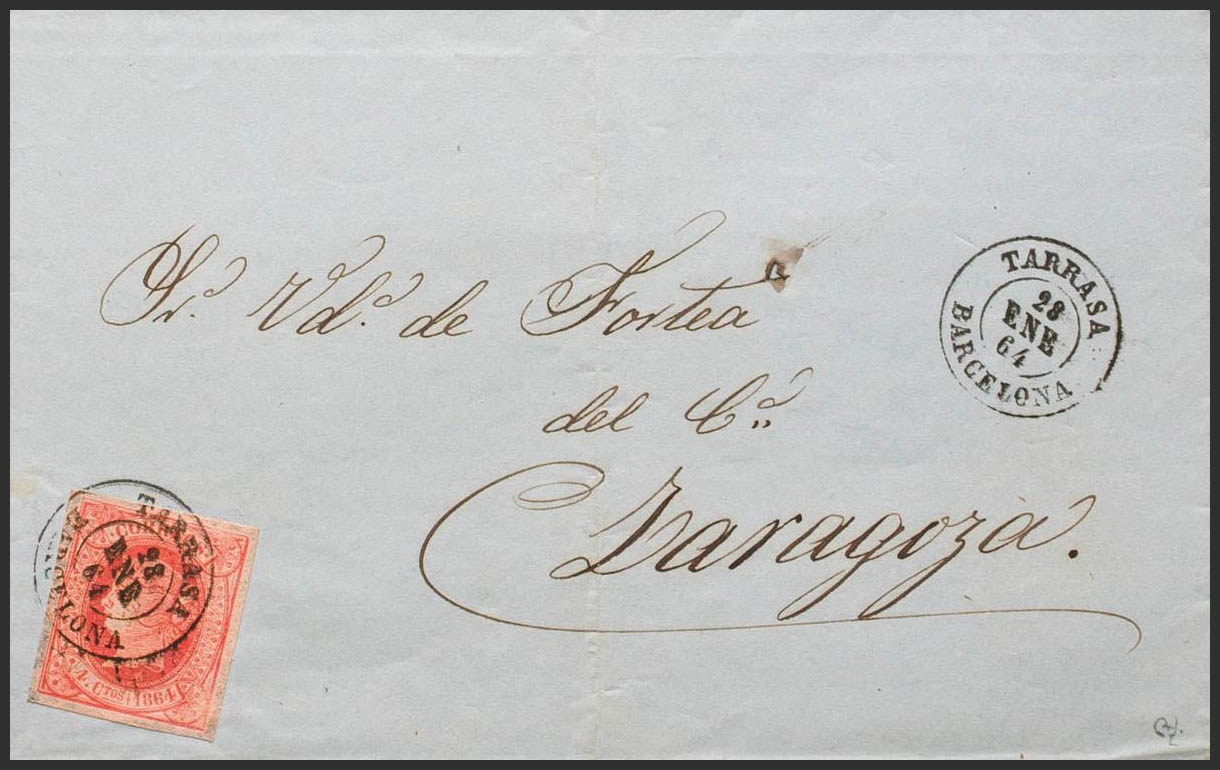 Sr. Vda. de Fortea
del Co.
Zaragoza.
TARRASA
28
ENE
64
BARCELONA
TARRASA
28
ENE
64
BARCELONA
CORREOS
4. CTOS. 1864